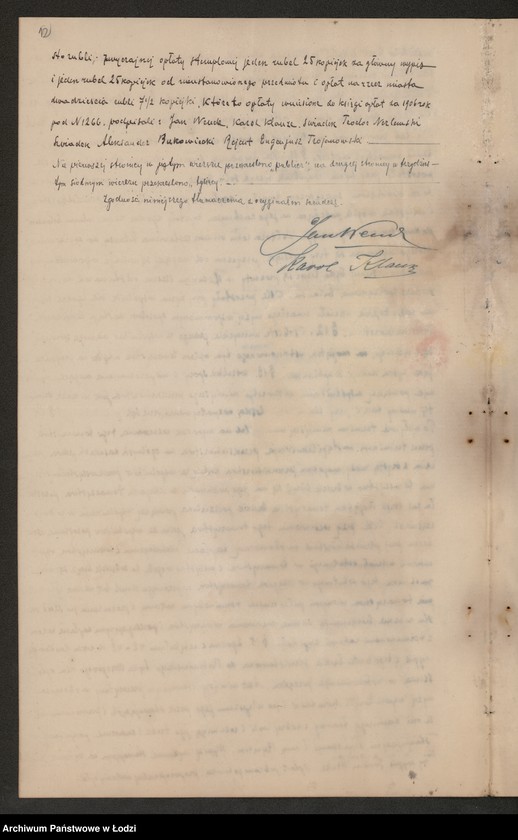 12)
sto rubli; zwyczajnej opłaty stemplowej jeden rubel 25 kopiejek za główny wypis
i jeden rubel 25 kopiejek od nieustanowionego przedmiotu i opłat na rzecz miasta
dwadzieścia rubli 71/2 kopiejki, które to opłaty wniesiono do księgi opłat za 1906 rok
pod N 1266. podpisali: Jan Wenck, Karol Klauze, świadek Teodor
świadek Aleksander Bukowiecki Rejent Eugenjusz Trojanowski
Na pierwszej stronicy w piątym wierszu przekreślono „public" na drugiej stronicy w trzydzies-
tym siódmym wierszu przekreślono,
Zgodność niniejszego tłumaczenia z oryginałem
Jan Wenck
Karol Klauze
Archiwum Państwowe w Łodzi